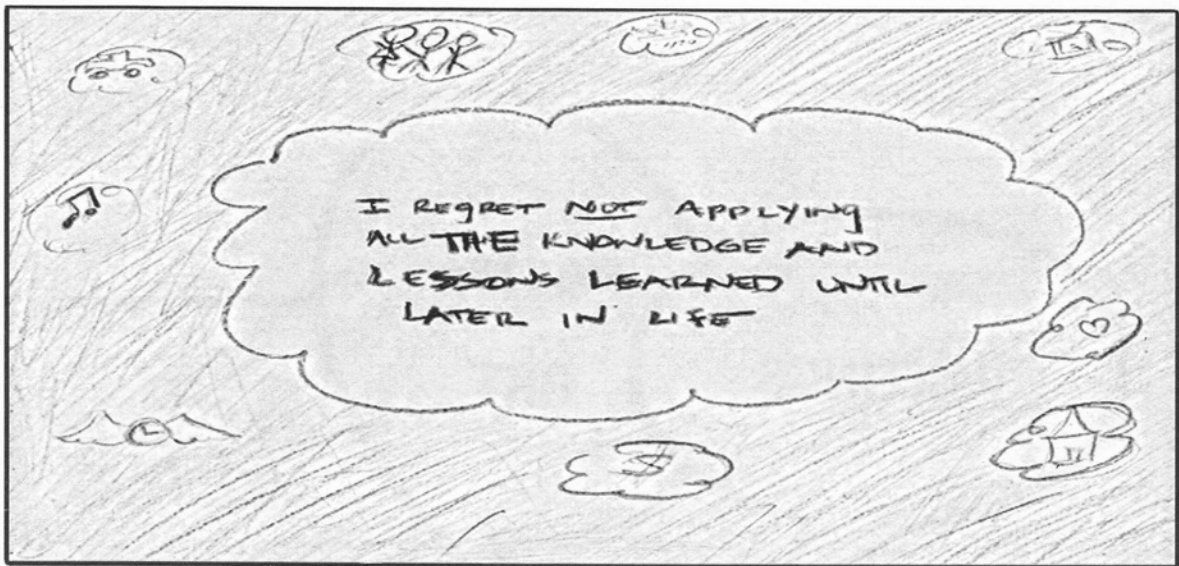 I REGRET NOT APPLYING
ALL THE KNOWLEDGE AND
LESSONS LEARNED UNTIL
LATER IN LIFE
$